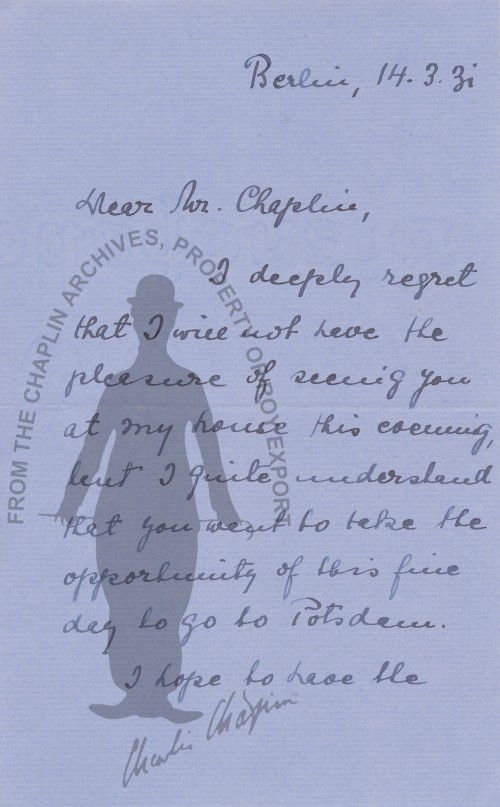 Berlin, 14. 3. 31
Dear Mr. Chaplin,
I deeply regret
that I will not have the
pleasure of seeing you
at my house this evening,
but I quite understand
that you want to take the
opportunity of this fine
day to go to Potsdam.
I hope to have the
FROM THE CHAPLIN ARCHIVES, PROPERTY OF ROY EXPORT
Charlie Chaplin